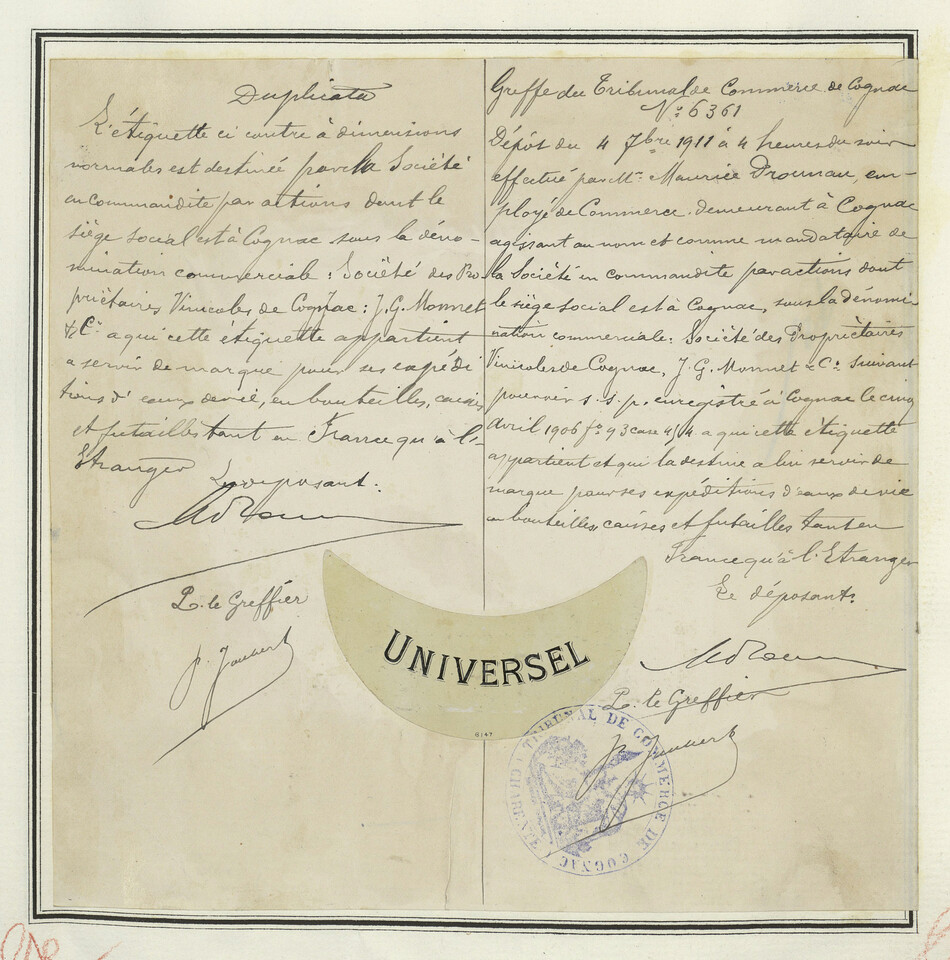 Duplicata
L'étiquette ci contre à dimensions
normales est destinée par la Société
en commandite par actions dont le
siège social est à Cognac sous la déno-
mination commerciale: Société des Pro-
priétaires Vinicoles de Cognac: J. G. Monnet
& Cie a qui cette étiquette appartient
a servir de marque pour ses expédi
tions d'eaux de vie, en bouteilles, caisses
et futailles tant en France qu'à l'-
Etranger
Le déposant.
P. le Greffier
Greffe du Tribunal de Commerce de Cognac
No: 6361
Dépôt du 4 7bre 1911 à 4 heures du soir
effectué par Mr. Maurice Drounau, em-
ployé de Commerce. demeurant à Cognac
agissant au nom et comme mandataire de
la Société en commandite par actions dont
le siège social est à Cognac, sous la dénomi
nation commerciale: Société des Propriétaires
Vinicoles de Cognac, J. G. Monnet & Cie suivant
pouvoir s. s. p. enregistré à Cognac le cinq
Avril 1906 fo 93 case 4/4 a qui cette étiquette
appartient et qui la destine a lui servir de
marque pour ses expéditions d'eaux de vie
en bouteilles, caisses et futailles tant en
France qu'à l'Etranger
Le déposant.
P. le Greffier
UNIVERSEL
6147
TRIBUNAL DE COMMERCE DE COGNAC (CHARENTE)